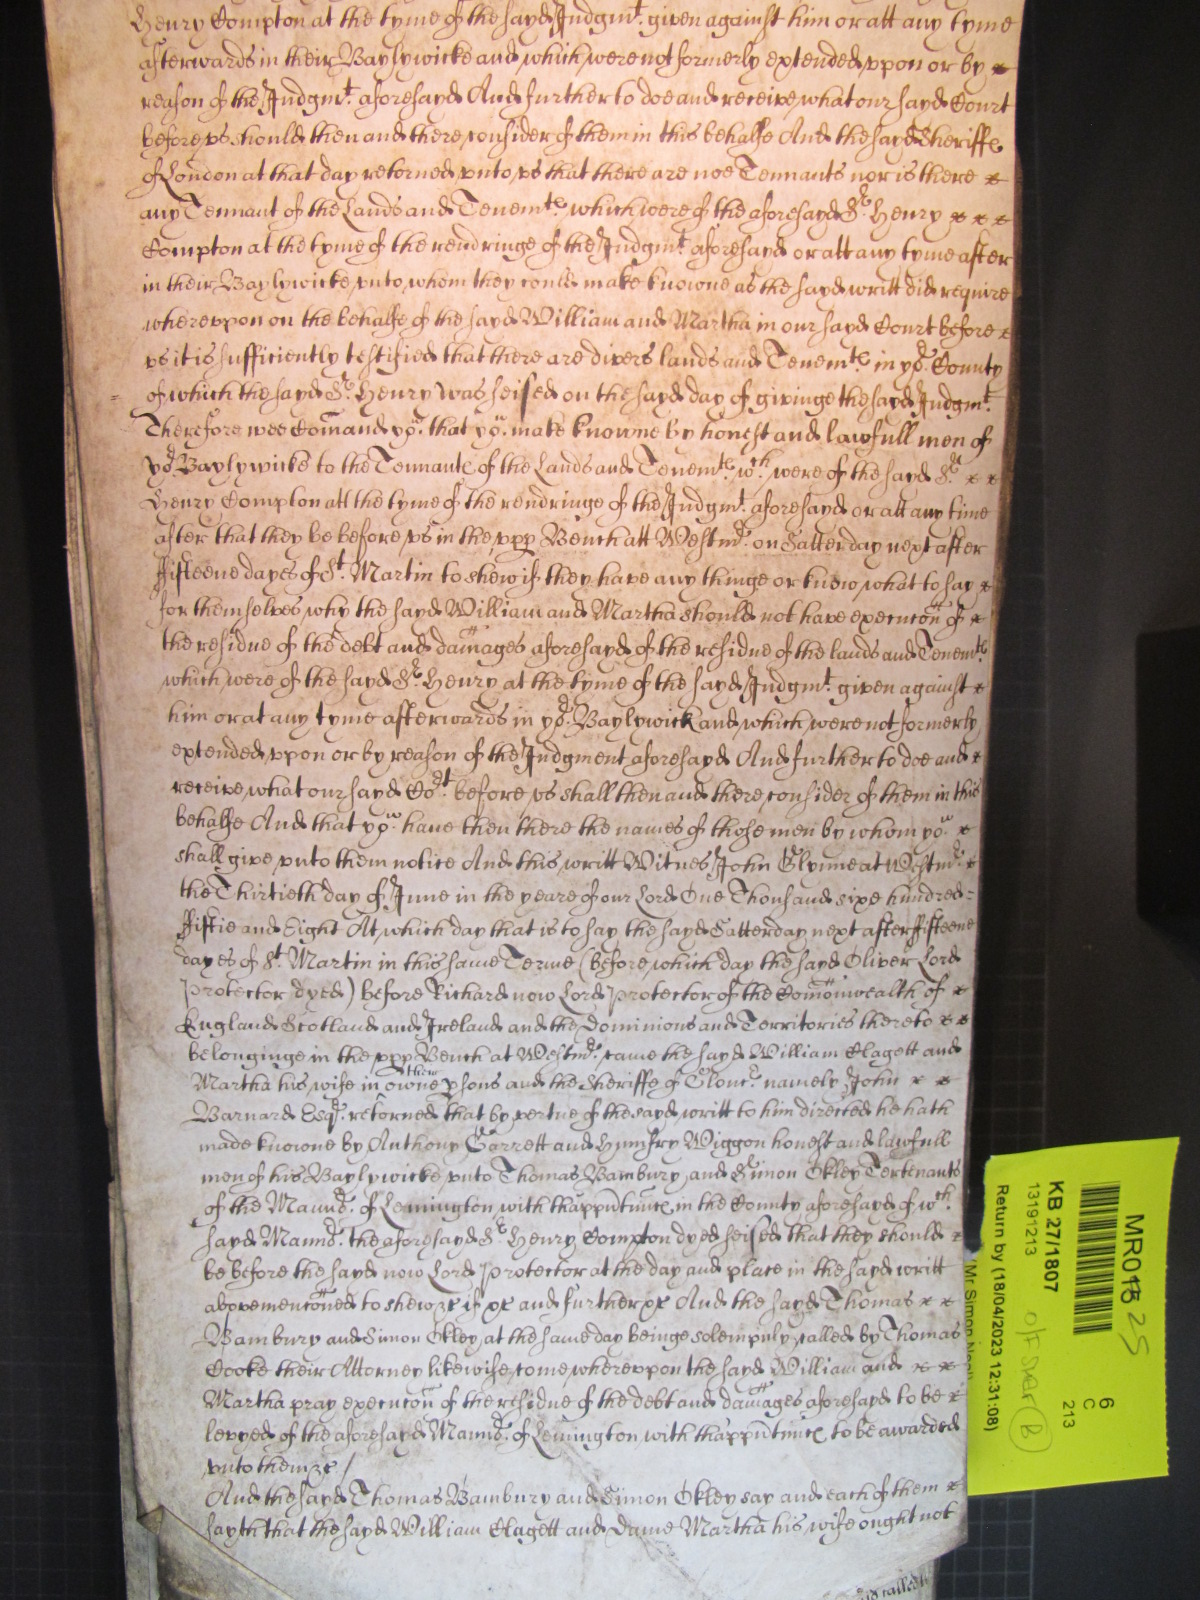 Henry Compton at the tyme of the sayd Judgmt. given against him or att any tyme
afterwards in their Baylywicke and which were not formerly extended vpon or by
reason of the Judgmt. aforesayd And further to doe and receive what our sayd Court
before vs should then and there consider of them in this behalfe And the sayd Sheriffe
of London at that day retorned vnto vs that there are noe Tennants nor is there
any Tennant of the Lands and Tenemts. which were of the aforesayd Sr. Henry
Compton at the tyme of the rendringe of the Judgmt. aforesayd or att any tyme after
in their Baylywicke vnto whom they could make knowne as the sayd writt did require
wherevpon on the behalfe of the sayd William and Martha in our sayd Court before
vs it is sufficiently testified that there are divers lands and Tenemts. in yor. County
of which the sayd Sr. Henry was seised on the sayd day of givinge the sayd Judgmt.
Therefore wee Comand you. that you. make knowne by honest and lawfull men of
yor. Baylywicke to the Tennants of the Lands and Tenemts. wch. were of the sayd Sr.
Henry Compton att the tyme of the rendringe of the Judgmt. aforesayd or att any time
after that they be before vs in the vpp Bench att Westmr. on Satterday next after
ffifteene dayes of St. Martin to shew if they have any thinge or know what to say
for themselves why the sayd William and Martha should not have execucon of
the residue of the debt and damages aforesayd of the residue of the lands and Tenemts.
which were of the sayd Sr. Henry at the tyme of the sayd Judgmt. given against
him or at any tyme afterwards in yor. Baylywick and which were not formerly
extended vpon or by reason of the Judgment aforesayd And further to doe and
receive what our sayd Cort. before vs shall then and there consider of them in this
behalfe And that you. have then there the names of those men by whom you.
shall give vnto them notice And this writt Witnes John Glynne at Westmr.
the Thirtieth day of June in the yeare of our Lord One Thousand sixe hundred
ffiftie and Eight At which day that is to say the sayd Satterday next after ffifteene
dayes of St. Martin in this same Terme (before which day the sayd Oliver Lord
Protector dyed) before Richard now Lord Protector of the Comonwealth of
England Scotland and Ireland and the Dominions and Territories thereto
belonginge in the vpp Bench at Westmr. came the sayd William Clagett and
Martha his wife in their owne psons and the Sheriffe of Glouc. namely John
Barnard Esqr. retorned that by vertue of the sayd writt to him directed he hath
made knowne by Anthony Garrett and Humfry Wiggon honest and lawfull
men of his Baylywicke vnto Thomas Bambury and Simon Okley Tertenants
of the Mannor. of Lemington with thapputnncs in the County aforesayd of wch.
sayd Mannor. the aforesayd Sr. Henry Compton dyed seised that they should
be before the sayd now Lord Protector at the day and place in the sayd writt
abovemenconed to shew &c if &c and further &c And the sayd Thomas
Bambury and Simon Okley at the same day beinge solempnly called by Thomas
Cooke their Attorney likewise come wherevpon the sayd William and
Martha pray execucon of the residue of the debt and damages aforesayd to be
levyed of the aforesayd Mannor. of Lemington with thapputnncs to be awarded
vnto them &c /
And the sayd Thomas Bambury and Simon Okley say and each of them
sayth that the sayd William Clagett and Dame Martha his wife ought not
called
MR018 25
6
C
213
KB 27/1807
13191213
Return by (18/04/2023 12:31:08)
Mr Simon
B